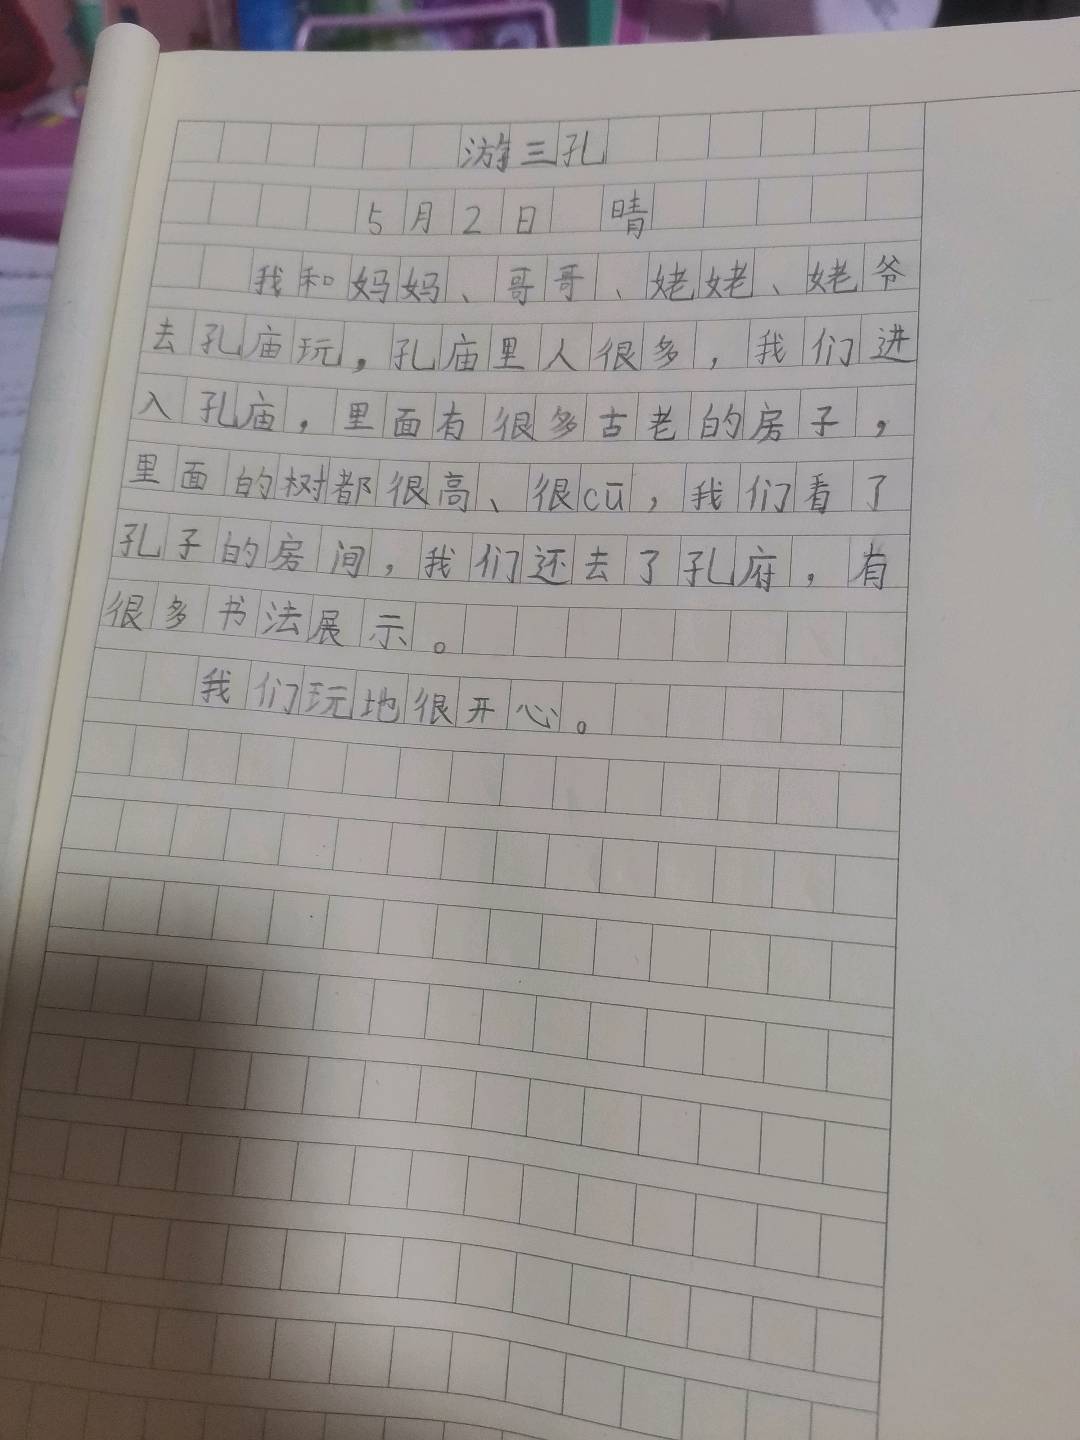 游三孔
5月2日 晴
我和妈妈、哥哥、姥姥、姥爷
去孔庙玩，孔庙里人很多，我们进
入孔庙，里面有很多古老的房子，
里面的树都很高、很cū，我们看了
孔子的房间，我们还去了孔府，有
很多书法展示。
我们玩地很开心。